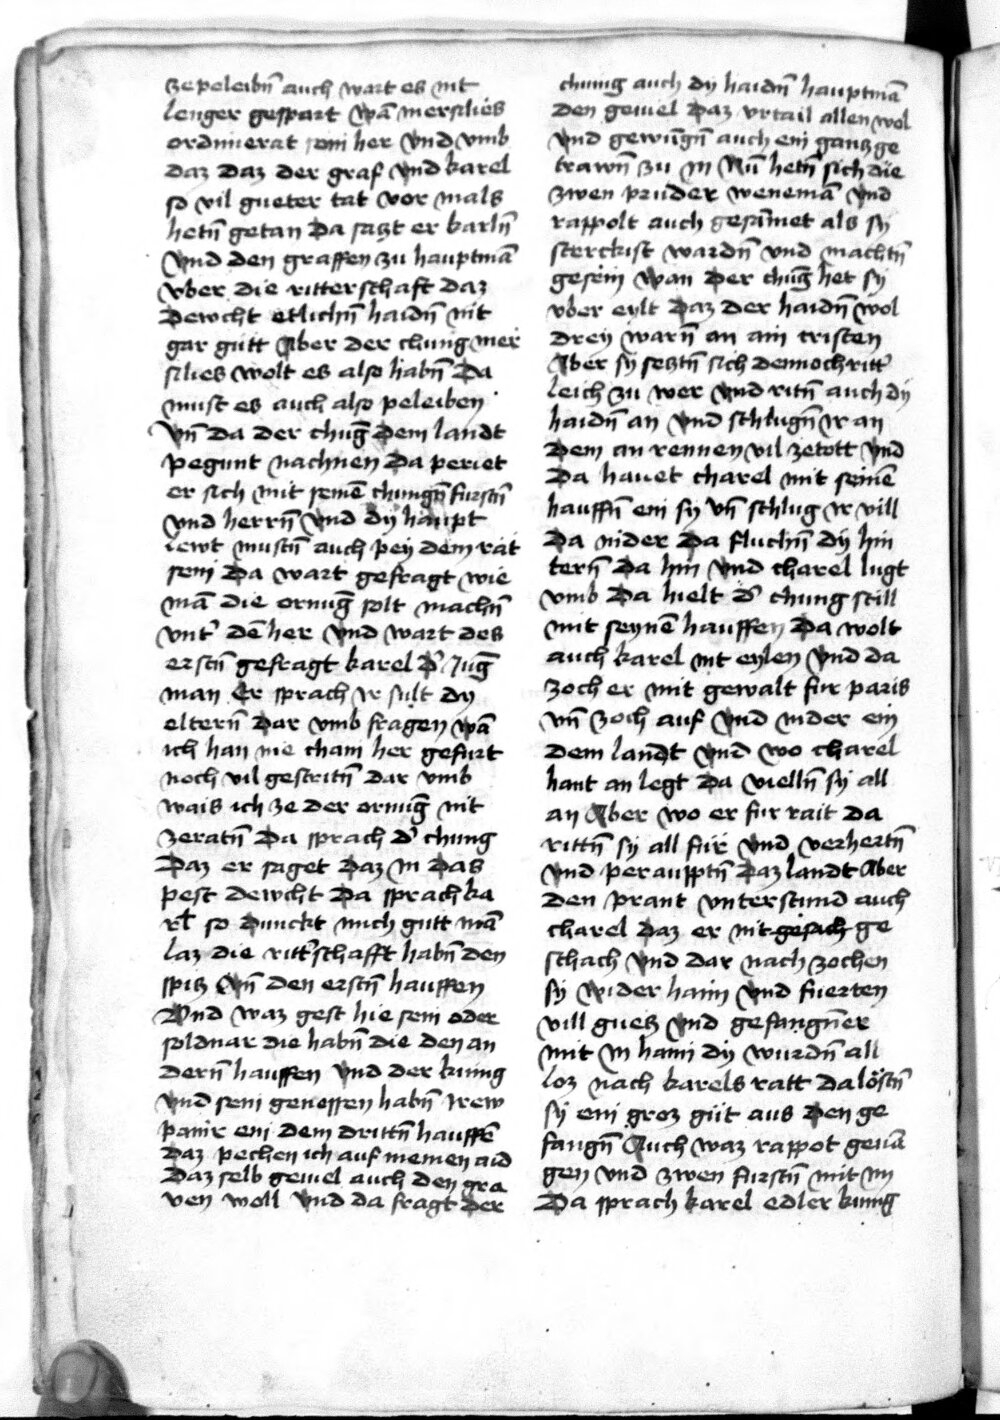 ze peleibn̄ auch wart es nit
lenger gespart Wā mersilies
ordinierat sein her Vnd vmb
daz daz der graf Vnd karel
so vil gueter tat vor mals
hetn̄ getan Da sazt er karln̄
Vnd den graffen zu hauptmā
vber die ritterschaft daz
Dewcht etlichn̄ haidn̄ nit
gar gutt Aber der chunig mer
silies wolt es also habn̄ Da
must es auch also peleiben
Vn̄ da der chuḡ Dem landt
pegunt nachnen Da periet
er sich mit seinē chunign̄ furstn̄
vnd herrn̄ Vnd dy haupt
lewt mustn̄ auch pey dem rat
sein Da wart gefragt wie
mā die ornuḡ solt machn̄
vnt' dē her Vnd wart des
erstn̄ gefragt karel d' Juḡ
man Er sprach Ir sult dy
eltern̄ Dar vmb fragen wā
ich han nie chain her gefurt
noch vil gestritn̄ Dar vmb
wais ich ze der ornuḡ nit
zeratn̄ Da sprach d' chunig
Daz er saget Daz in Das
pest dewcht Da sprach ka
rl so dunckt mich gutt mā
laz die ritt'schafft habn̄ den
spitz Vn̄ den erstn̄ hauffen
Vnd waz gest hie sein oder
soldnar die habn̄ die den an
dern̄ hauffen Vnd der kunig
Vnd sein genossen habn̄ Irew
panir ein dem drittn̄ hauffē
Daz pechen ich auf meinen aid
Daz selb geuiel auch den gra
uen woll Vnd da fragt der
chunig auch dy haidn̄ hauptmā
Den geuiel Daz vrtail allen wol
Vnd gewūgn̄ auch ein gantz ge
trawn̄ zu in Nū hetn̄ sich die
zwen pruder wenemā Vnd
rappolt auch gesāmet als sy
sterckist wardn̄ vnd machtn̄
gesein Wan Der chuḡ het sy
vber eylt Daz der haidn̄ wol
drey warn̄ an ain cristen
Aber sy seztn̄ sich dennoch ritt'
leich zu wer Vnd ritn̄ auch dy
haidn̄ an Vnd schlugn̄ Ir an
Dem an rennen vil zetott Vnd
Da hauet charel mit seinē
hauffn̄ ein sy vn̄ schlug Ir vill
Da nider Da fluchn̄ dy hin
tern̄ Da hin Vnd charel lugt
vmb Da hielt d' chunig still
mit seynē hauffen Da wolt
auch karel nit eylen Vnd da
zoch er mit gewalt fur paris
vn̄ zoch auf Vnd nider ein
dem landt Vnd wo charel
hant an legt Da vielln̄ sy all
an Aber wo er fur rait da
rittn̄ sy all fur Vnd verhertn̄
Vnd perauptn̄ Daz landt Aber
den prant vnterstund auch
charel daz er nit gesich ge
schach Vnd dar nach zochen
sy wider haim Vnd fuerten
vill guetz Vnd gefangn̄er
mit in haim dy wurdn̄ all
loz nach karels ratt Da löstn̄
sy ein groz gut aus Den ge
fangn̄ Auch waz rappot geuā
gen vnd zwen furstn̄ mit im
Da sprach karel edler kunig